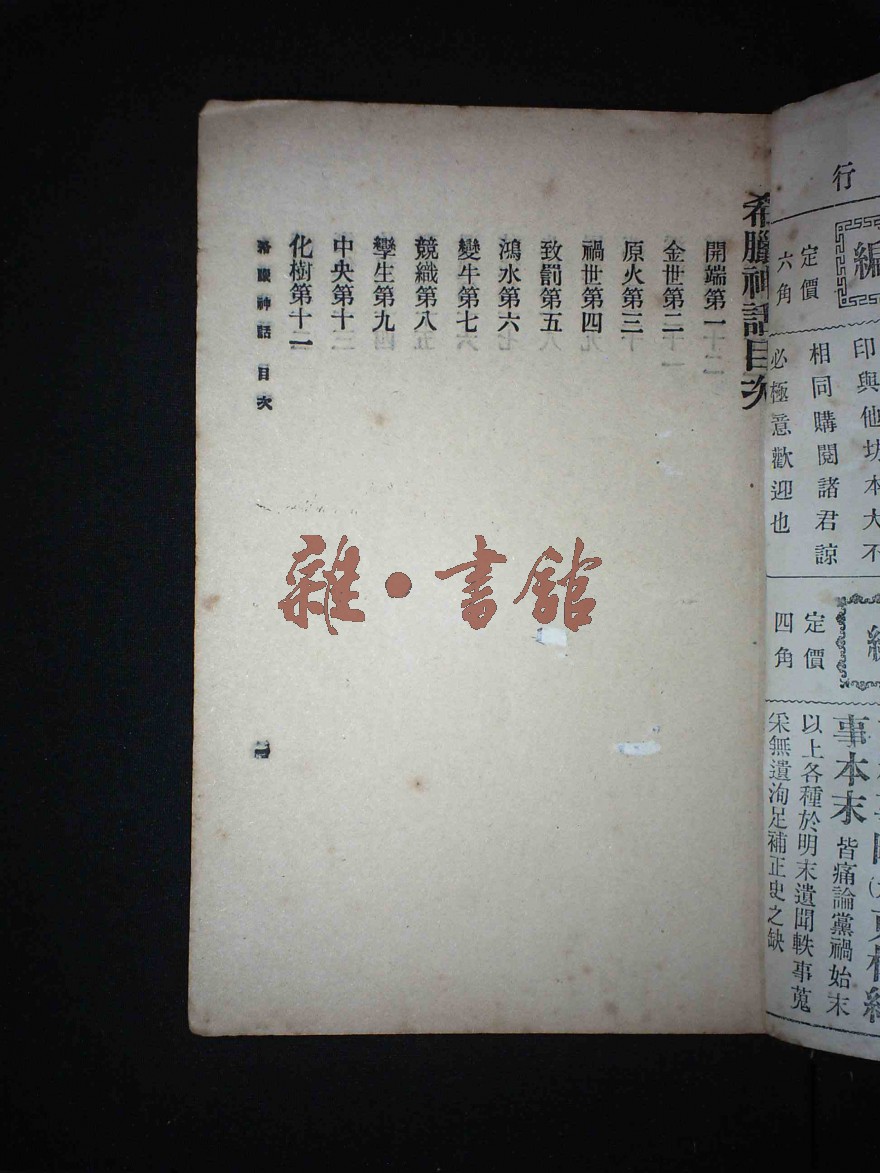 希臘神話目次
開端第一
金世第二
原火第三
禍世第四
致罰第五
鴻水第六
變牛第七
競織第八
孿生第九
中央第十
化樹第十一
希臘神話 目次
雜·書館
行
編
定價
六角
印與他坊本大不
相同購閱諸君諒
必極意歡迎也
定價
四角
事本末
皆痛論黨禍始末
以上各種於明末遺聞軼事蒐
采無遺洵足補正史之缺